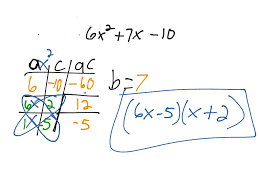 6x²+7x-10
ax² | C | aC
6 | -10 | -60
6x | 2 | 12
1x | -5 | -5
b=7
(6x-5)(x+2)